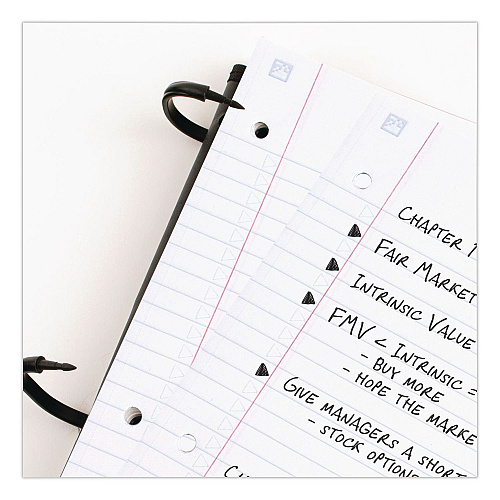 CHAPTER 1
FAIR MARKET
INTRINSIC VALUE
FMV < INTRINSIC =
- BUY MORE
- HOPE THE MARKE
GIVE MANAGERS A SHORT
- STOCK OPTIONS
CU